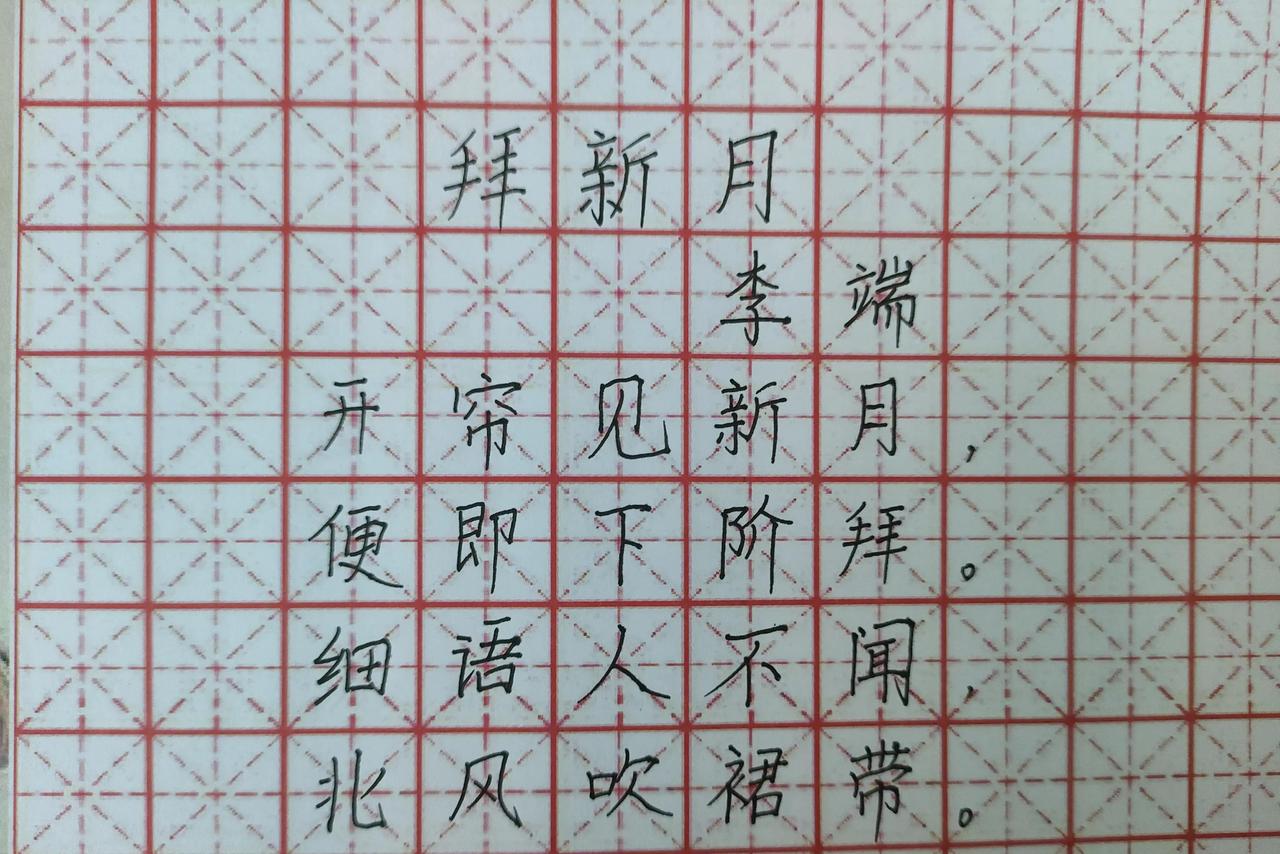 拜新月
李端
开帘见新月，
便即下阶拜。
细语人不闻，
北风吹裙带。